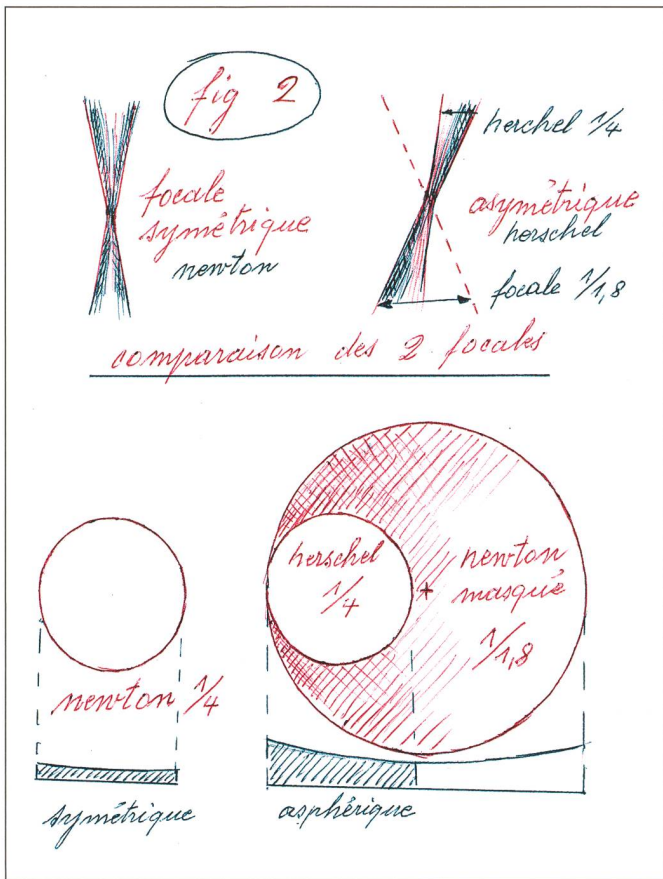 fig 2
herchel 1/4
focale
symétrique
newton
asymétrique
herschel
focale 1/1,8
comparaison des 2 focales
herschel
1/4
newton
masqué
1/1,8
newton 1/4
symétrique
asphérique